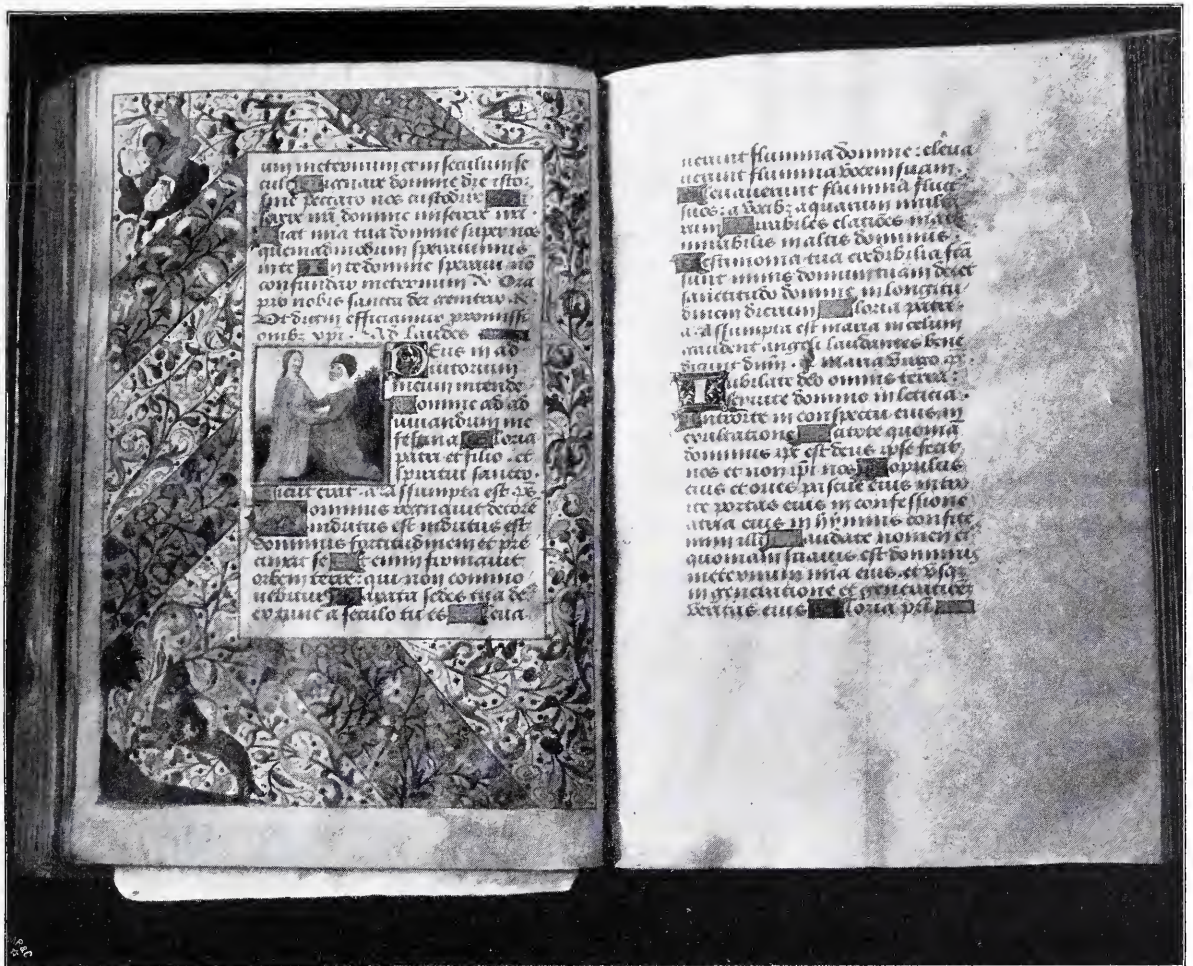 um meternum et in seculum se
culi ignare domine die isto
sine peccato nos custodire
serere nri domine miserere nri
iat mia tua domine super nos
quemadmodum speravimus
in te n te domine speravi no
confundar meternum Ora
pro nobis sancta dei genitrix
Ut digni efficiamur promissi
onibz xpi Ad laudes
Deus in ad
iutorium
meum intende
omine ad ad
iuvandum me
festina loria
patri et filio et
spiritui sancto
Sicut erat a Assumpta est ps
ominus regnavit decore
indutus est indutus est
dominus fortitudinem et pre
cinxit se t enim firmavit
orbem terre qui non commo
vebitur arata sedes tua de
ex tunc a seculo tu es leva
verunt flumina domine eleva
verunt flumina vocem suam
levaverunt flumina fluct
suos a vocibz aquarum multa
rum irabiles elatiões maris
mirabilis in altis dominus
estimonia tua credibilia fca
sunt nimis domum tuam decet
sanctitudo domine in longitu
dinem dierum loria patri
a Assumpta est maria in celum
gaudent angeli laudantes bene
dicunt dnm Maria virgo ps
Iubilate deo omnis terra
servite domino in leticia
Introite in conspectu eius in
exultatione citote quonia
dominus ipe est deus ipse fecit
nos et non ipi nos opulus
eius et oves pascue eius intro
ite portas eius in confessione
atria eius in hymnis confite
mini illi audate nomen ei
quoniam suavis est dominus
meternum mia eius et usqz
in generatione et generatione
veritas eius loria pri